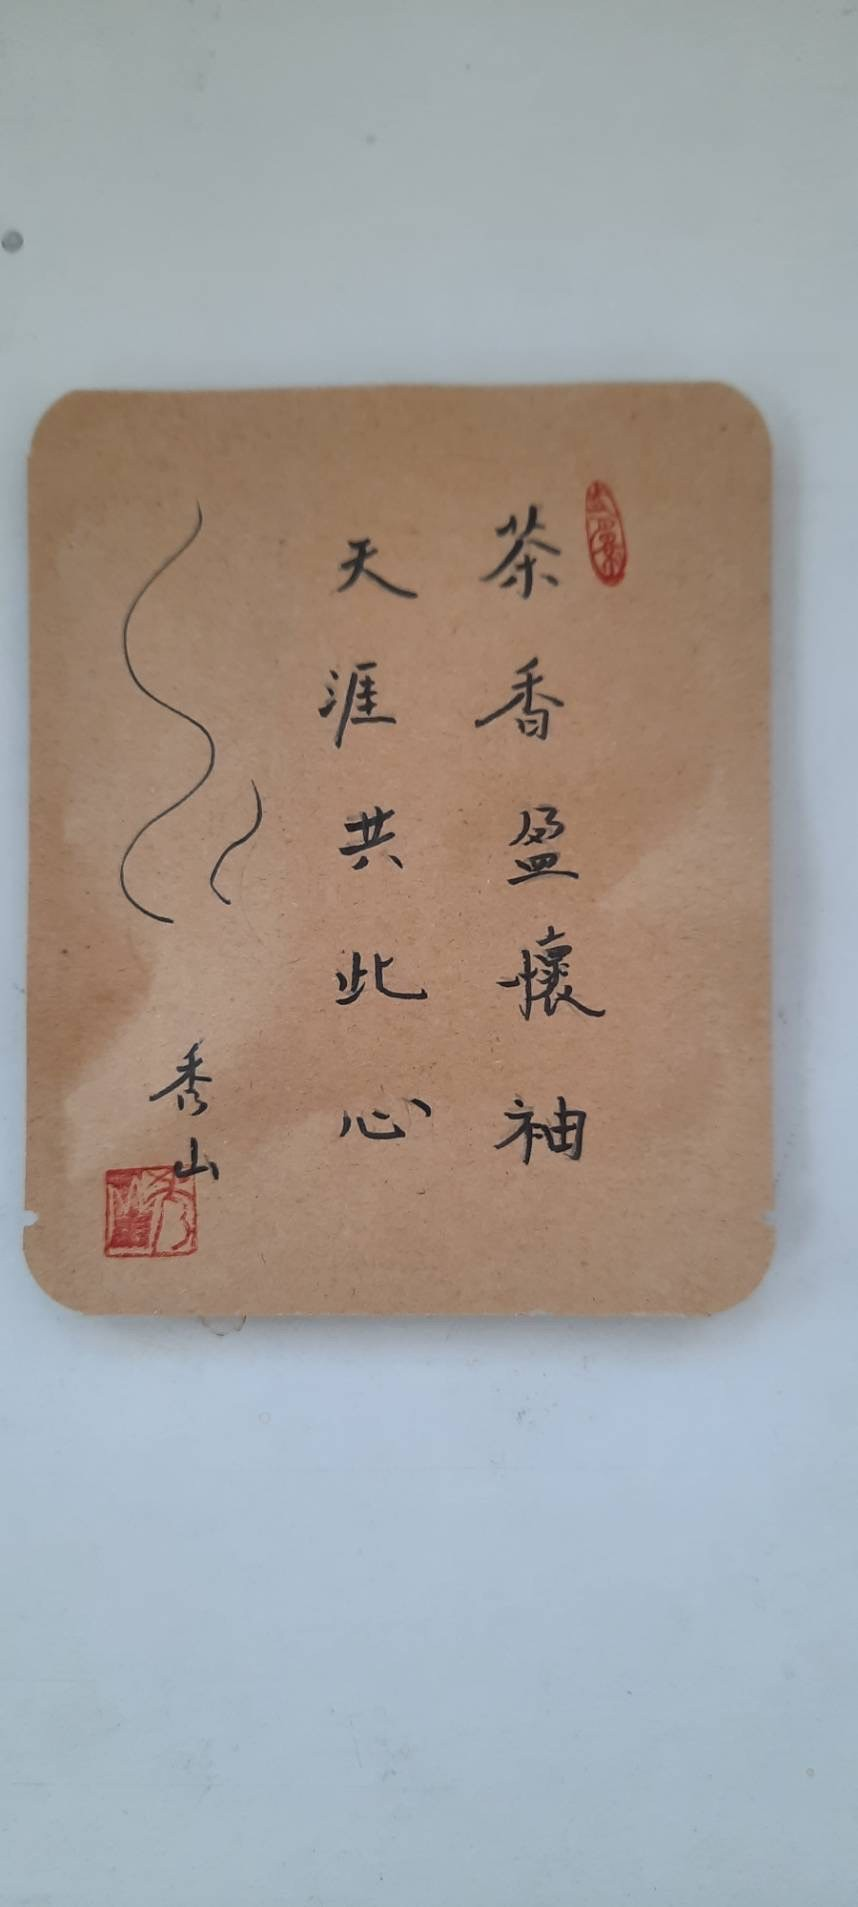 茶香盈懷袖
天涯共此心
秀山